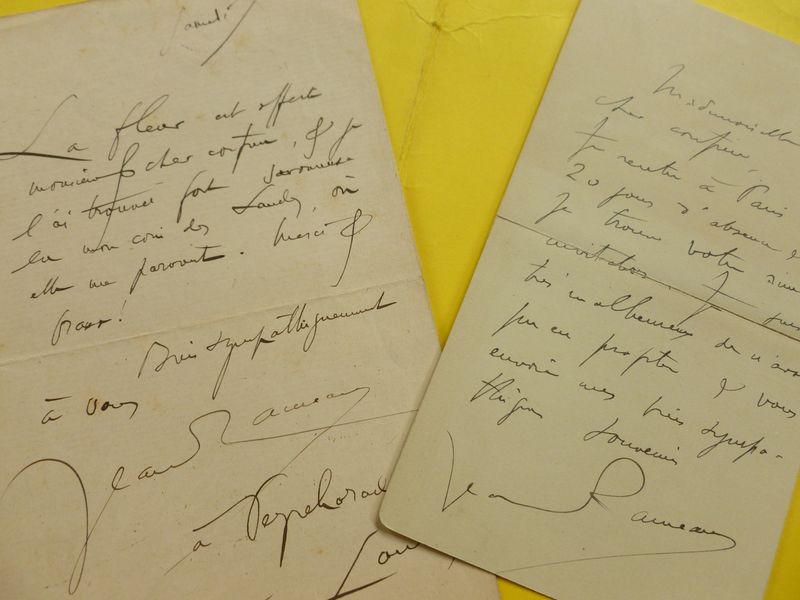 Samedi
La fleur est offerte
monsieur & cher confrère, & je
l'ai trouvée fort savoureuse
en mon coin des Landes, où
elle me parvint. Merci &
bravo!
Bien sympathiquement
à vous
Jean Rameau
à Peyrehorade
Lan
Mademoiselle
cher confrère,
Je rentre à Paris
20 jours d'absence &
je trouve votre aim
invitation. Je suis
très malheureux de n'avo
pu en profiter & vous
envoie mes très sympa-
thiques souvenirs
Jean Rameau